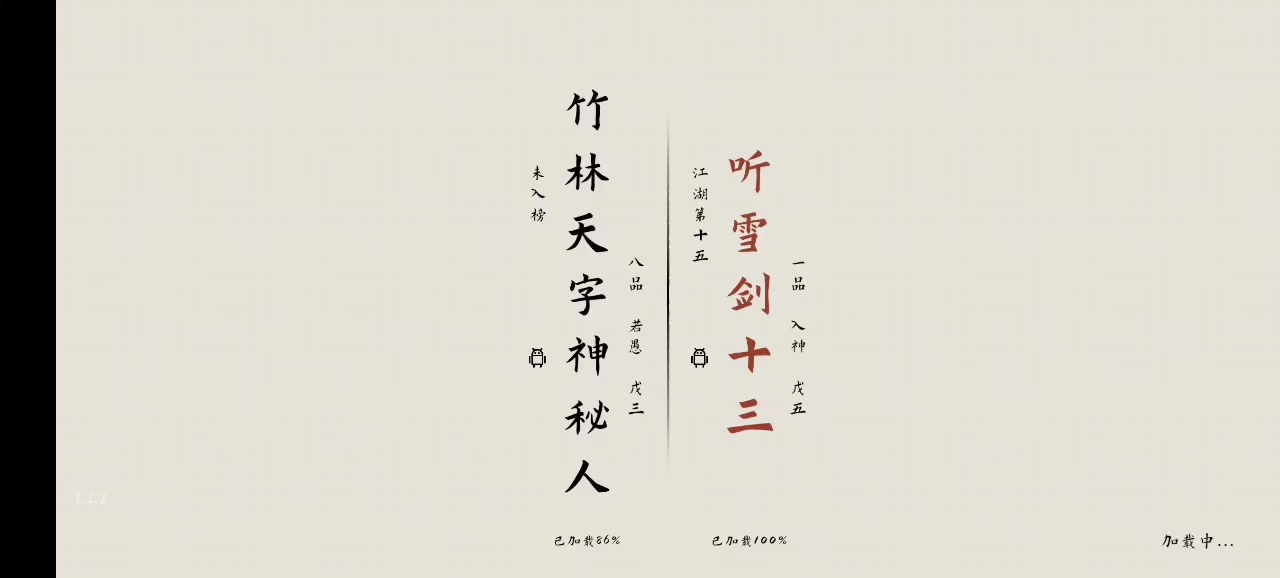 未入榜
竹林天字神秘人
八品 若愚 戊三
已加载86%
江湖第十五
听雪剑十三
一品 入神 戊五
已加载100%
1.2.2
加载中...